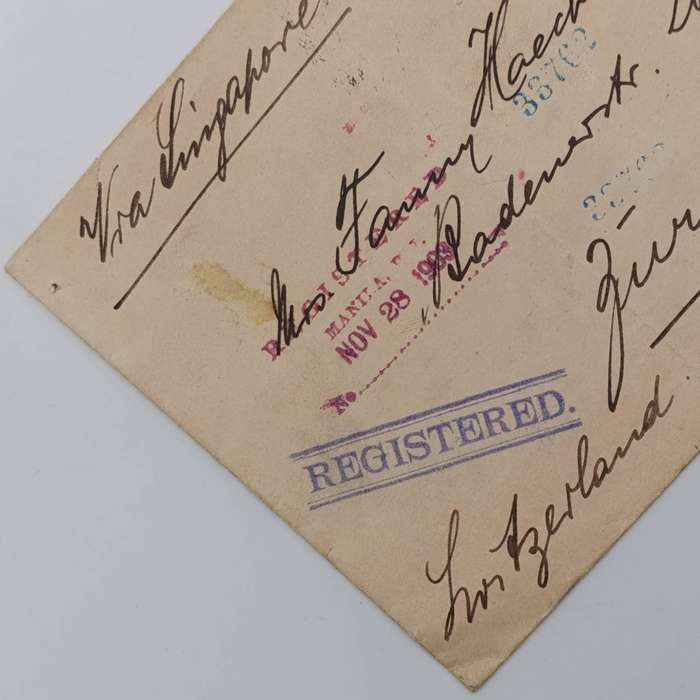 Via Singapore.
Mrs. Fanny Haech
Badenerstr.
Zür
Switzerland.
33702
REGISTERED
MANILA, P. I.
NOV 28 1903
No.
REGISTERED.